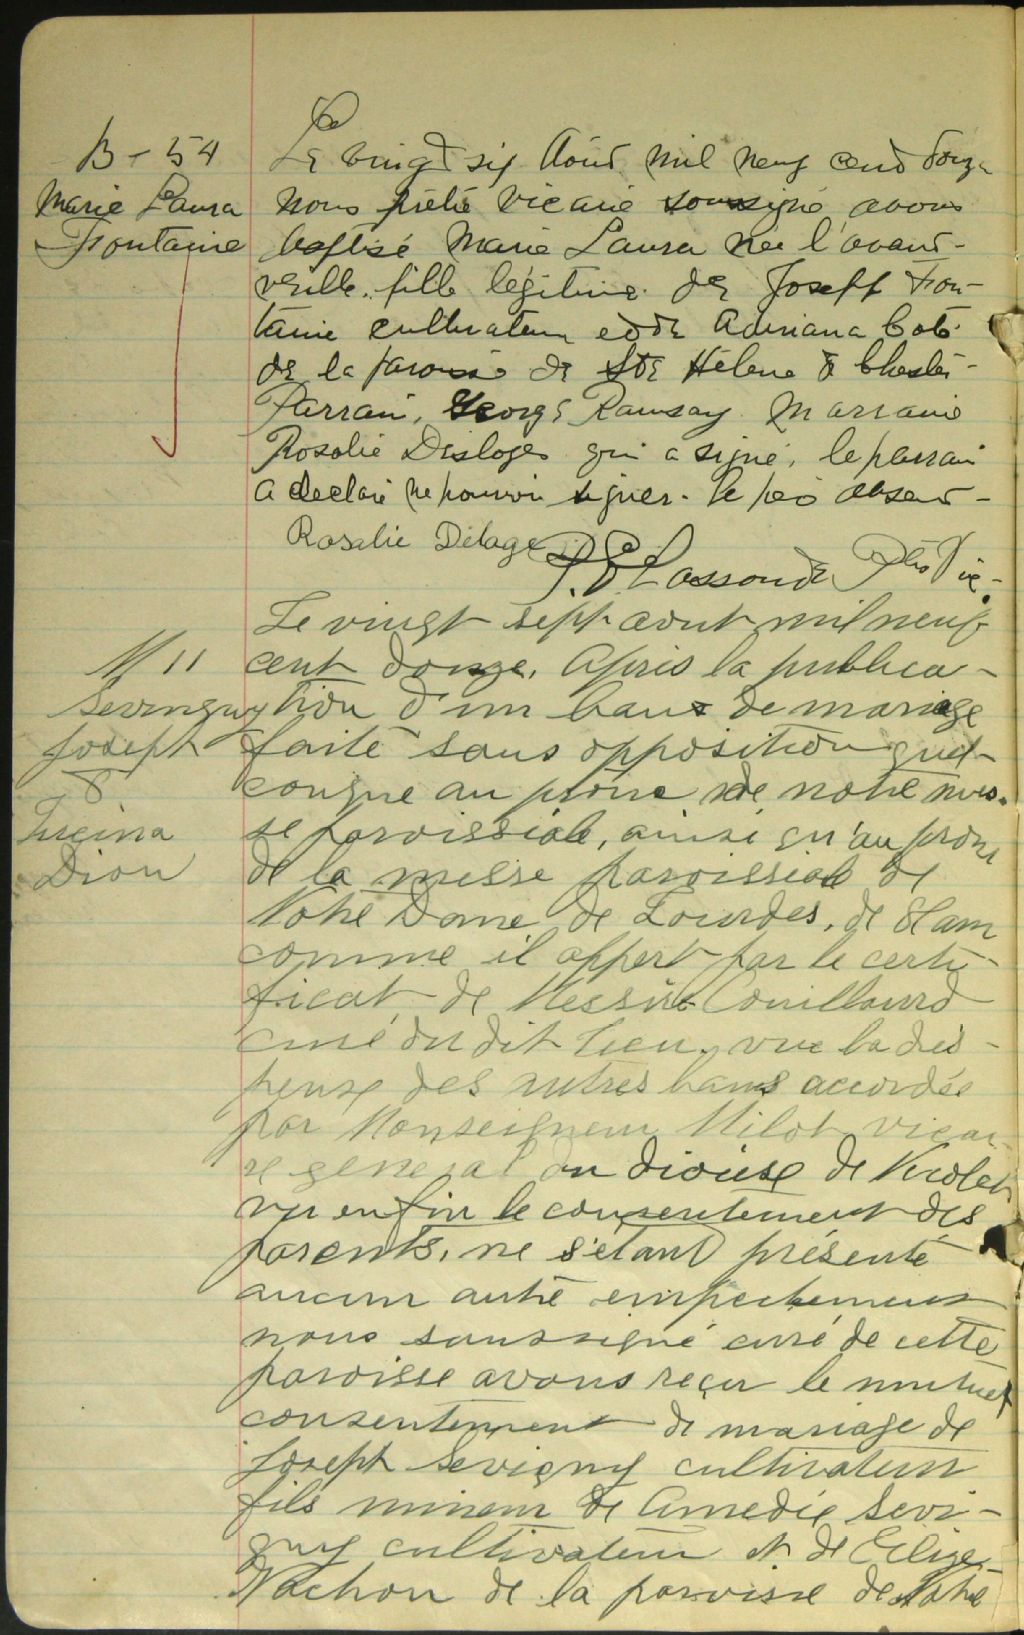 B - 54
Marie Laura
Fontaine
Le vingt six Août mil neuf cent douze
nous prêtre vicaire soussigné avons
baptisé Marie Laura née l'avant-
veille, fille légitime de Joseph Fon-
taine cultivateur et de Adriana Coté
de la paroisse de Ste Hélène de Chester-
Parrain, George Ramsay Marraine
Rosalie Desloges qui a signé, le parrain
a declaré ne pouvoir signer. le père absent -
Rosalie Délage
P. E Lassonde Ptre Vic.
M 11
Sevingny
Joseph
&
Lucina
Dion
Le vingt sept aout mil neuf
cent douze, Après la publica-
tion d'un bans de mariage
faite sans opposition quel-
conque au prône de notre mes-
se paroissiale, ainsi qu'au prone
de la messe paroissiale de
Notre Dame de Lourdes, de Ham
comme il appert par le certi-
ficat de Messire Couillard
curé du dit lieu, vue la dis-
pense des autres bans accordée
par Monseigneur Milot vicai-
re general du diocèse de Nicolet
vu enfin le consentement des
parents, ne s'étant présenté
aucun autre empechement
nous soussigné curé de cette
paroisse avons reçu le mutuel
consentement de mariage de
Joseph Sevigny cultivateur
fils mineur de Amedée Sevi-
gny cultivateur et de Elize
Vachon de la paroisse de Notre